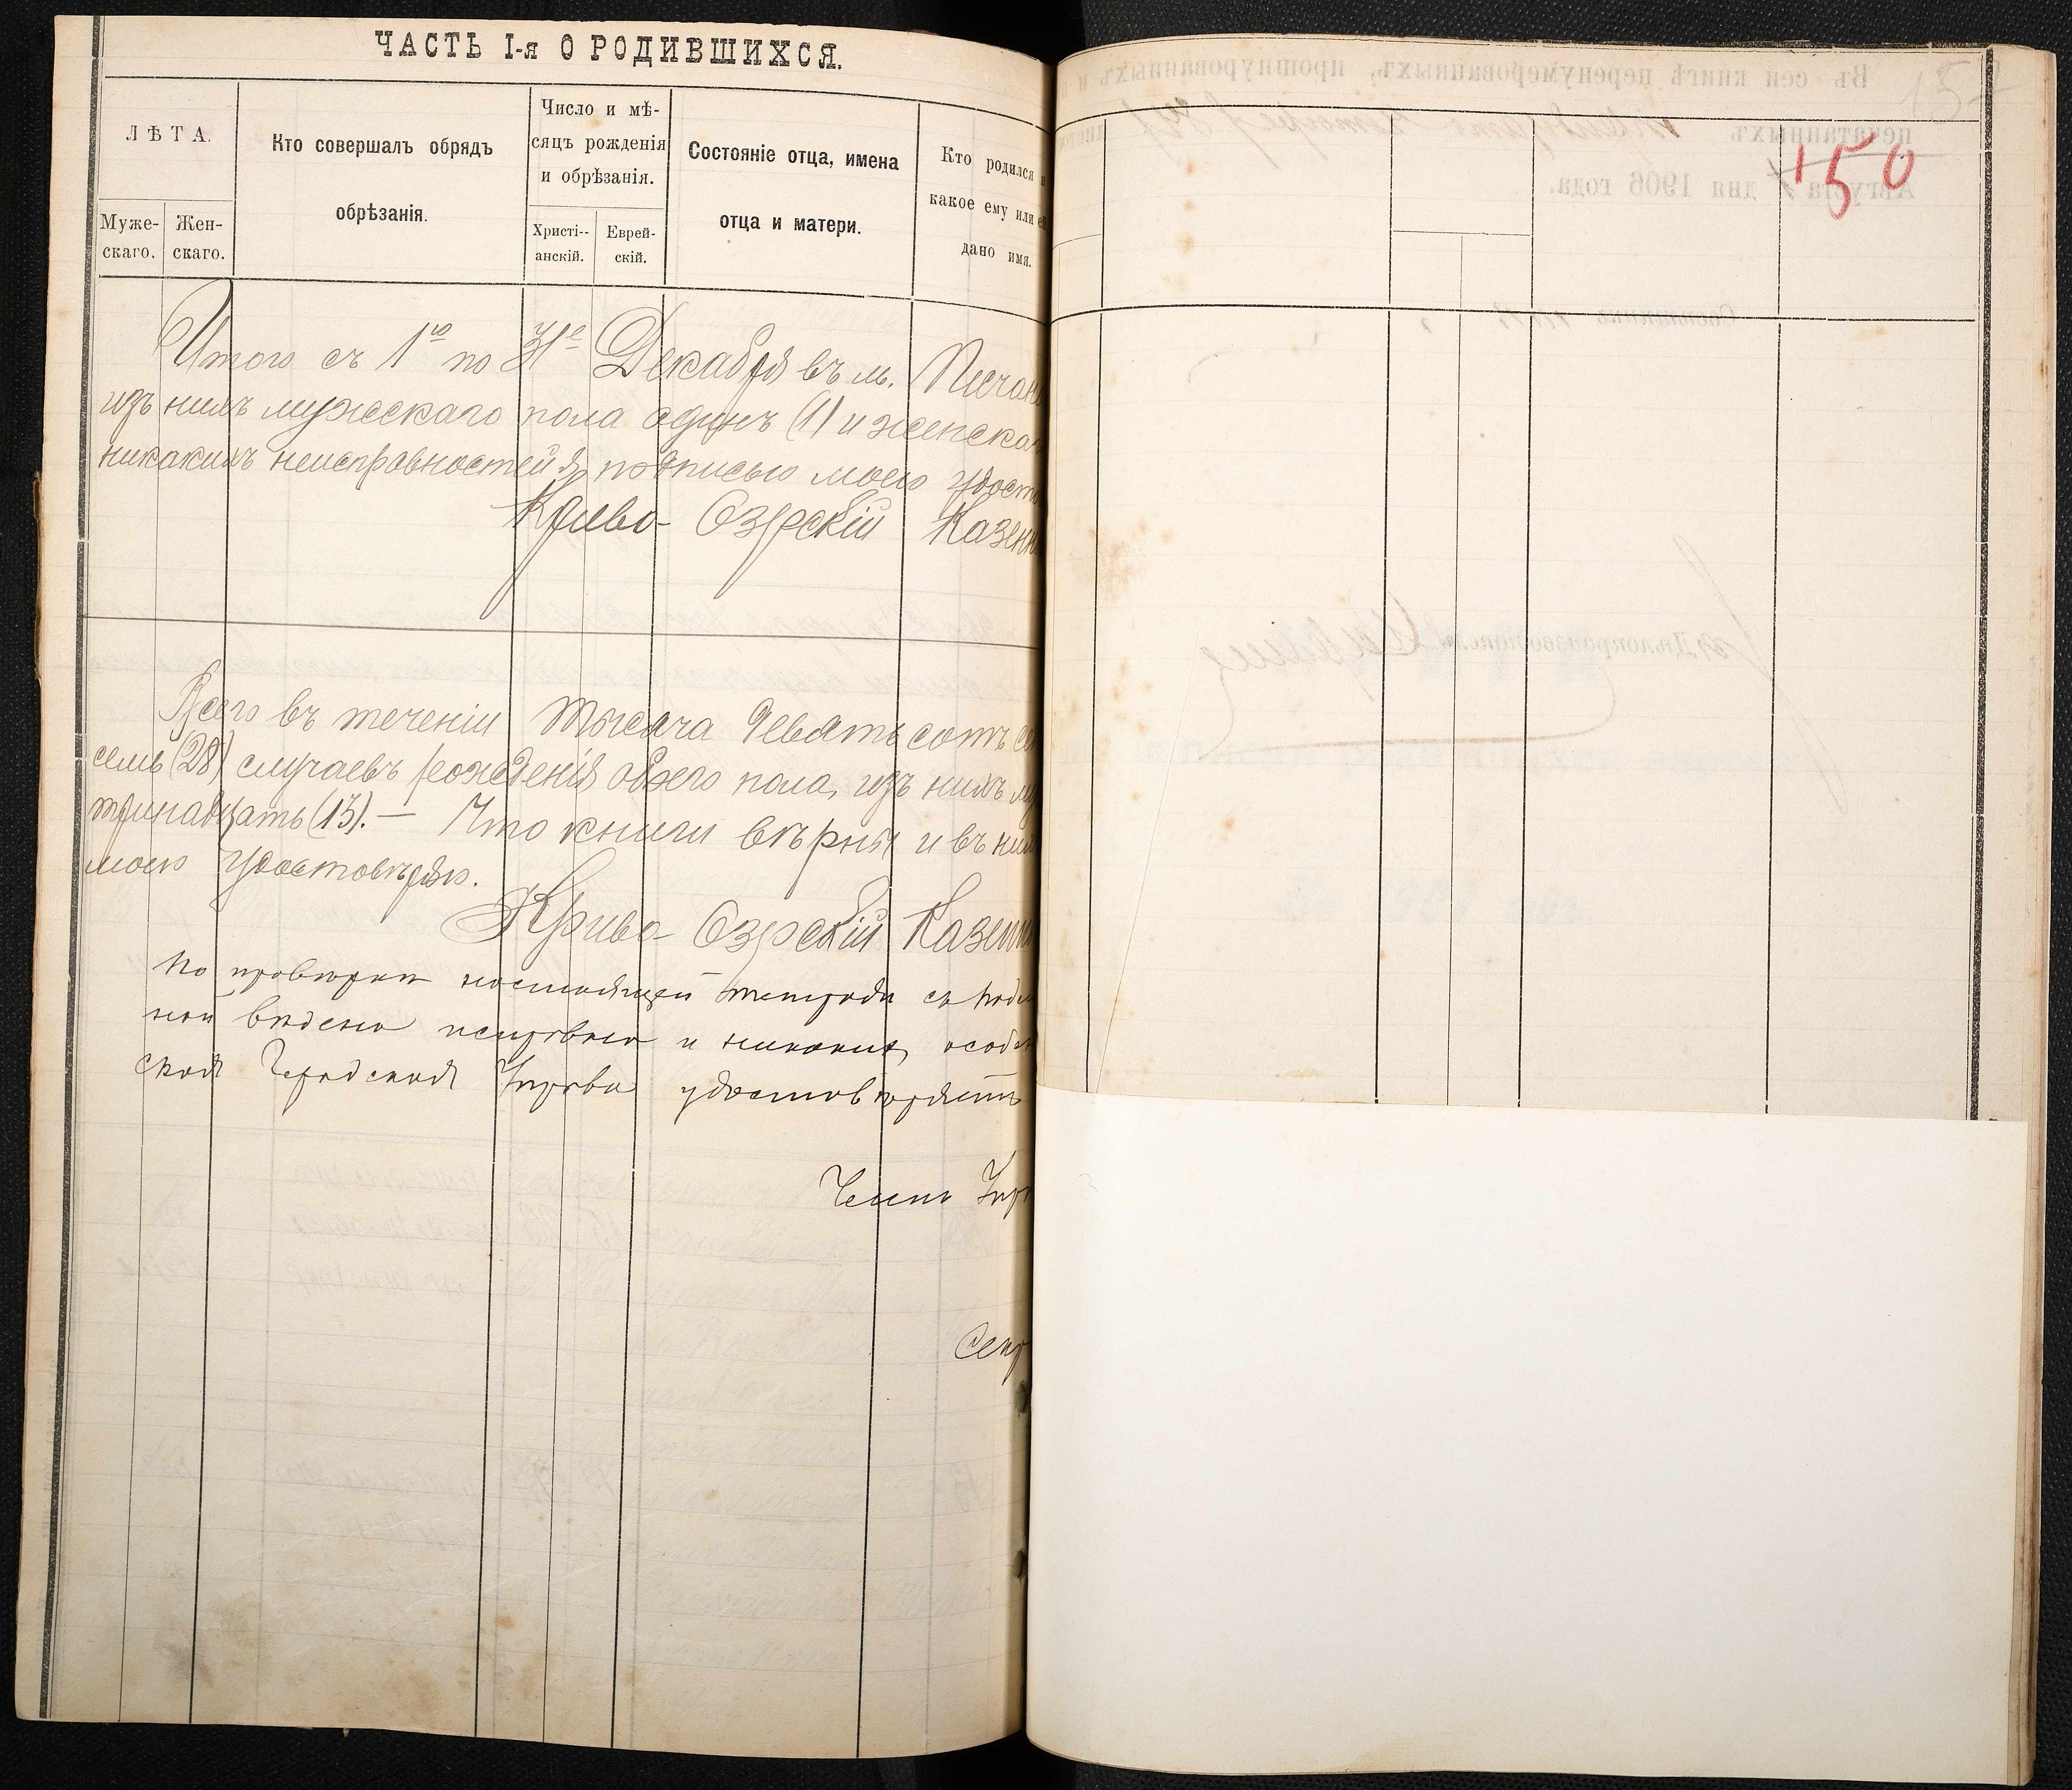 ЧАСТЬ I-я О РОДИВШИХСЯ.
ЛѢТА.
Муже-
скаго.
Жен-
скаго.
Кто совершалъ обрядъ
обрѣзанія.
Число и мѣ-
сяцъ рожденія
и обрѣзанія.
Христі-
анскій.
Еврей-
скій.
Состояніе отца, имена
отца и матери.
Кто родился и
какое ему или ей
дано имя.
Итого съ 1го по 31е Декабря въ м. Песчан
изъ нихъ мужескаго пола одинъ (1) и женскаг
никакихъ неисправностей, подписью моею удосто
Криво-Озерскій Казенн
Всего въ теченіи тысяча девятьсотъ
семь (28) случаевъ рожденія обоего пола, изъ нихъ му
тринадцать (13). — Что книги вѣрны и въ них
моею удостовѣряю.
Криво-Озерскій Казенн
По провѣркѣ настоящей тетради съ
ной ведена исправно и никакихъ особ
ская Городская Управа удостовѣряетъ
Членъ Упр
Секр
150
Въ сей книгѣ перенумерованныхъ, прошнурованныхъ и
печатанныхъ
Августа 4 дня 1906 года.
Дѣлопроизводитель